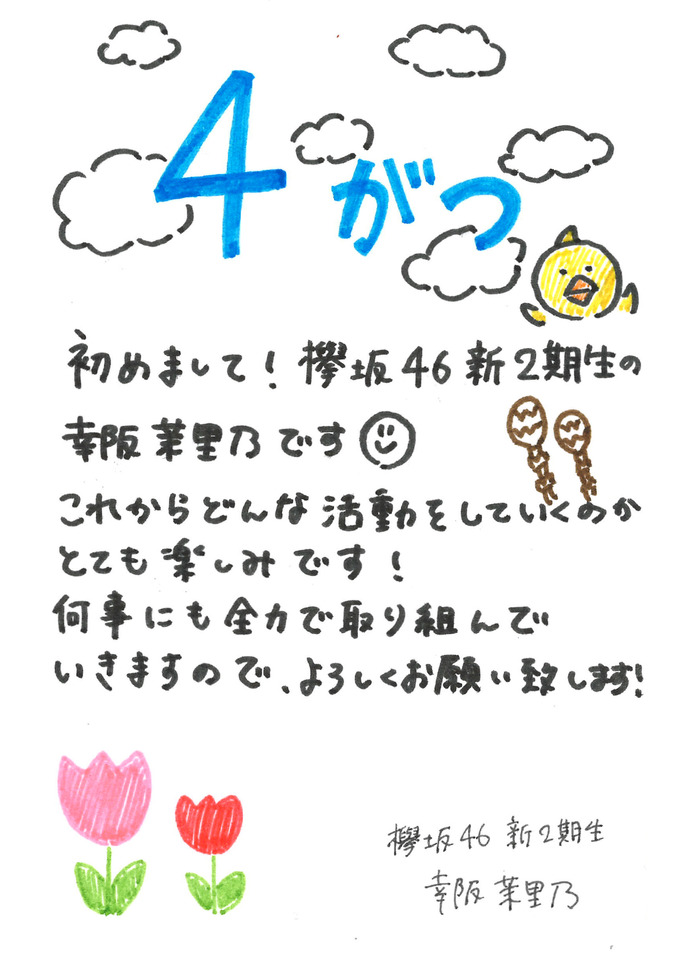 4がつ
初めまして！欅坂46新2期生の
幸阪茉里乃です
これからどんな活動をしていくのか
とても楽しみです！
何事にも全力で取り組んで
いきますので、よろしくお願い致します！
欅坂46 新2期生
幸阪 茉里乃